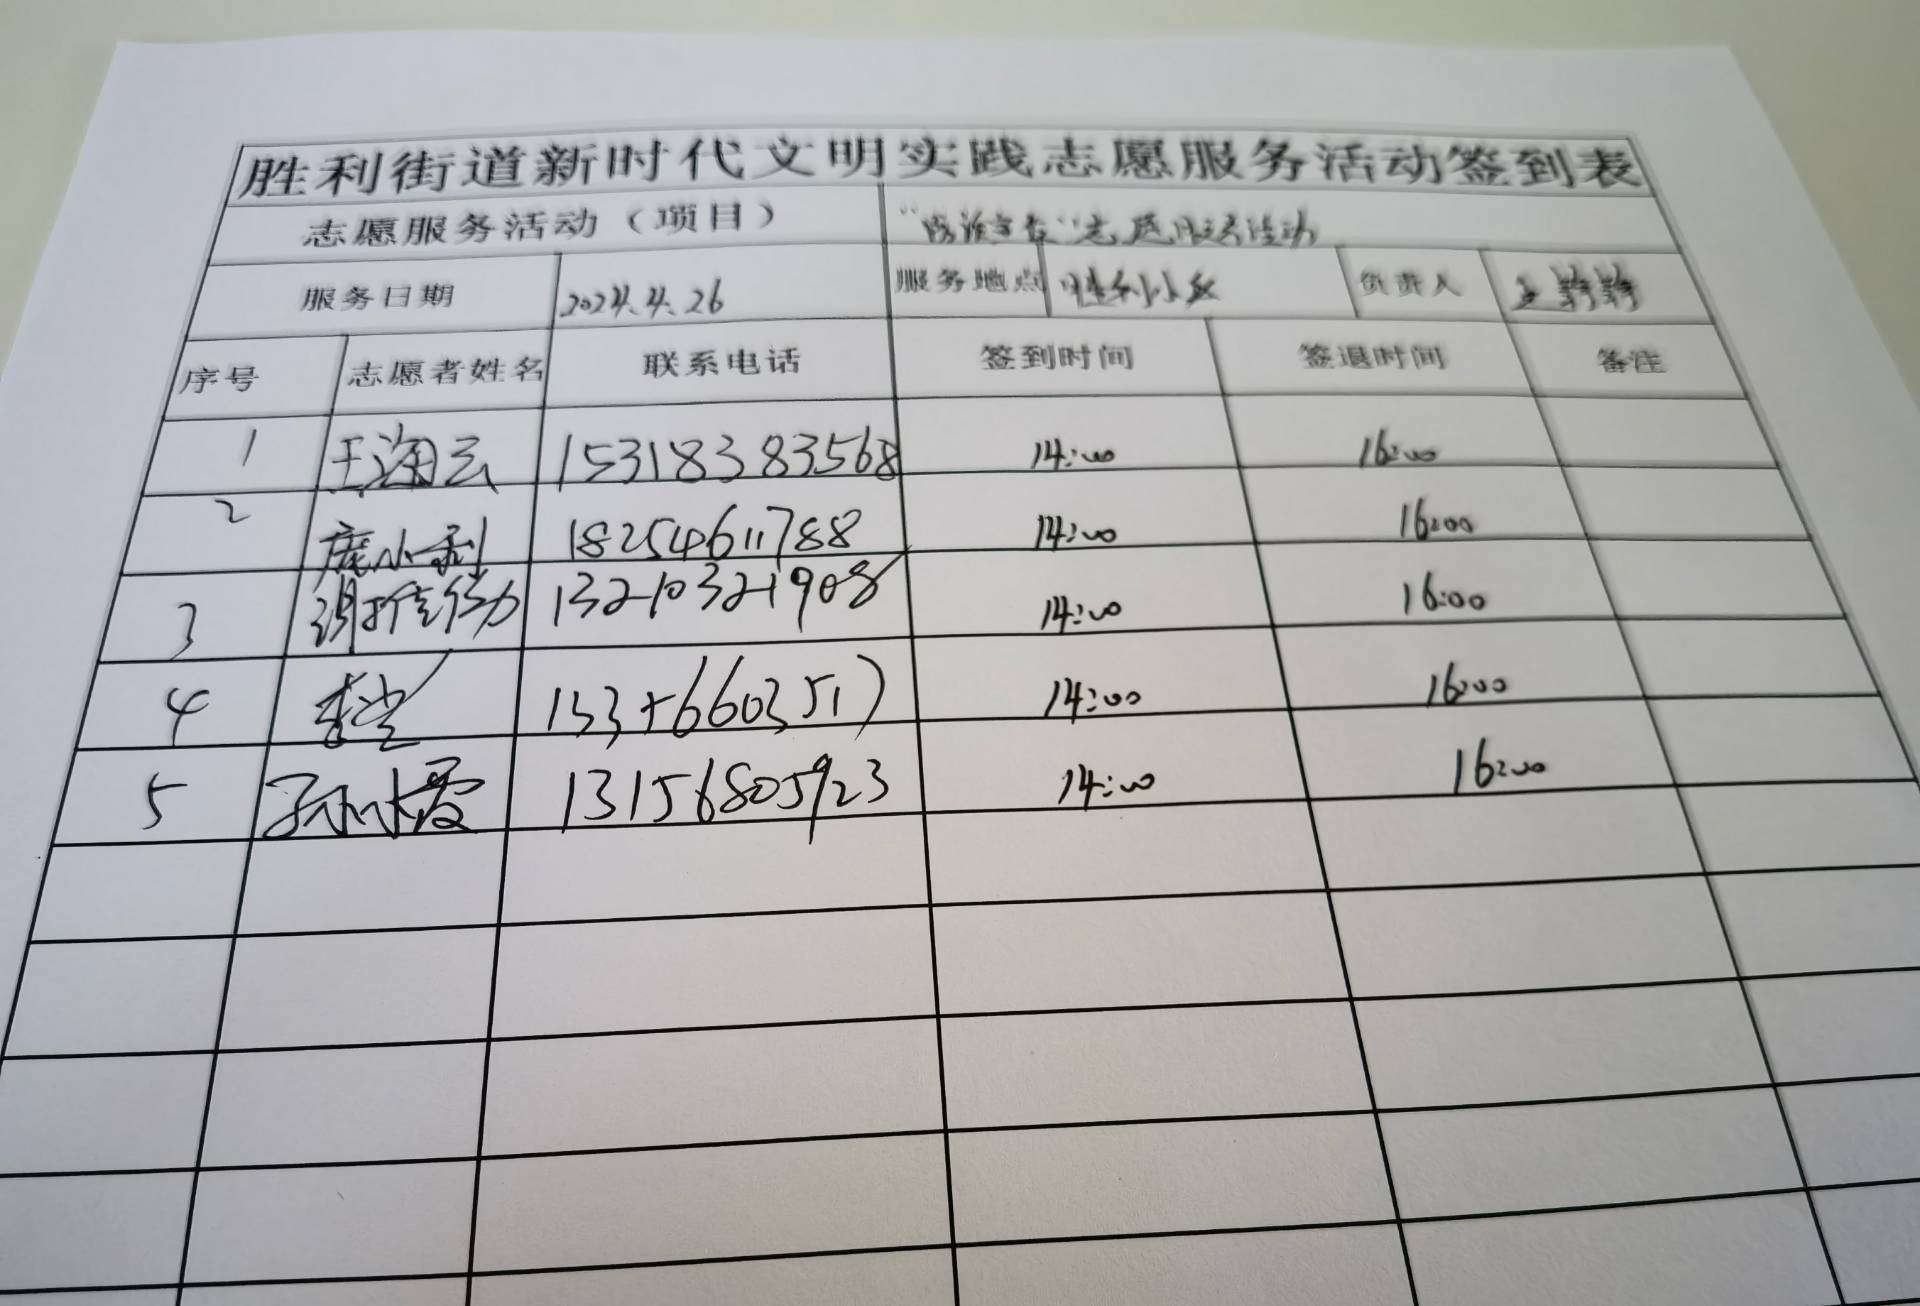 胜利街道新时代文明实践志愿服务活动签到表
志愿服务活动（项目） 志愿服务活动
服务日期 2024.4.26 服务地点 胜利小区 负责人
序号 志愿者姓名 联系电话 签到时间 签退时间 备注
1 王海云 15318383568 14:00 16:00
2 庞小利 18254611788 14:00 16:00
3 13210321908 14:00 16:00
4 14:00 16:00
5 孙小霞 13156805923 14:00 16:00